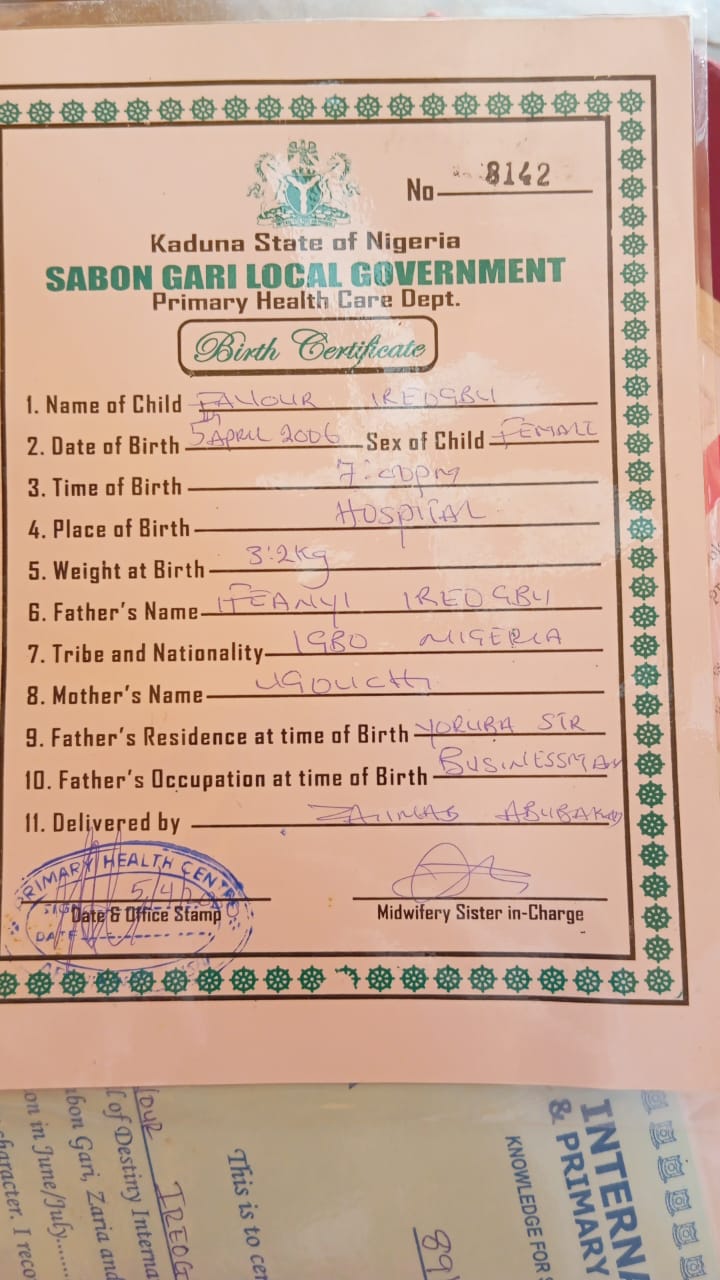 No 8142
Kaduna State of Nigeria
SABON GARI LOCAL GOVERNMENT
Primary Health Care Dept.
Birth Certificate
1. Name of Child FAVOUR IREOGBU
2. Date of Birth 5th APRIL 2006 Sex of Child FEMALE
3. Time of Birth 7:00pm
4. Place of Birth HOSPITAL
5. Weight at Birth 3.2kg
6. Father's Name IFEANYI IREOGBU
7. Tribe and Nationality IGBO NIGERIA
8. Mother's Name UGOUCHI
9. Father's Residence at time of Birth YORUBA STR
10. Father's Occupation at time of Birth BUSINESSMAN
11. Delivered by ABUBAKAR
PRIMARY HEALTH CENTRE
SIGN 5/4/
Date & Office Stamp
DATE
Midwifery Sister in-Charge
INTERNA
& PRIMARY
KNOWLEDGE FOR
89
This is to cer
OUR IREOG
l of Destiny Interna
bon Gari, Zaria and
on in June/July........
haracter. I reco